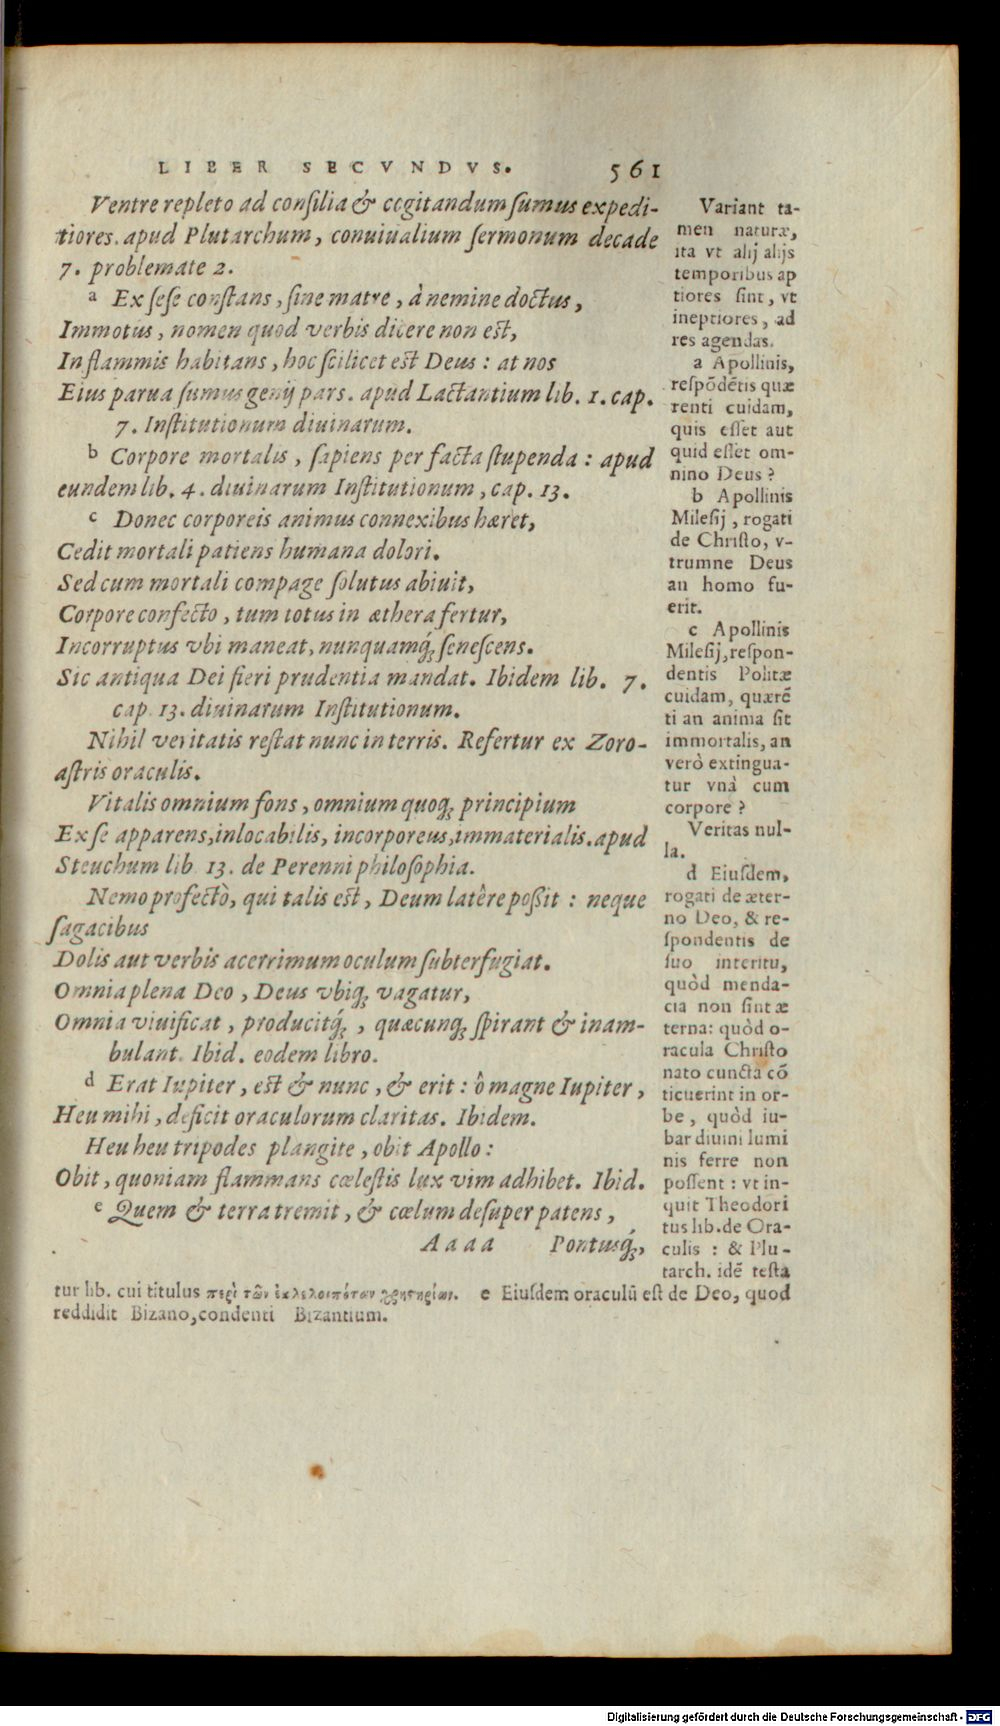 LIBER SECVNDVS. 561
Ventre repleto ad conſilia & cogitandum ſumus expedi-
tiores. apud Plutarchum, conuiualium ſermonum decade
7. problemate 2.
a Ex ſeſe conſtans, ſine matre, à nemine doctus,
Immotus, nomen quod verbis dicere non eſt,
In flammis habitans, hoc ſcilicet eſt Deus: at nos
Eius parua ſumus genij pars. apud Lactantium lib. 1. cap.
7. Inſtitutionum diuinarum.
b Corpore mortalis, ſapiens per facta ſtupenda: apud
eundem lib. 4. diuinarum Inſtitutionum, cap. 13.
c Donec corporeis animus connexibus hæret,
Cedit mortali patiens humana dolori.
Sed cum mortali compage ſolutus abiuit,
Corpore confecto, tum totus in æthera fertur,
Incorruptus vbi maneat, nunquamq́; ſeneſcens.
Sic antiqua Dei fieri prudentia mandat. Ibidem lib. 7.
cap. 13. diuinarum Inſtitutionum.
Nihil veritatis reſtat nunc in terris. Refertur ex Zoro-
aſtris oraculis.
Vitalis omnium fons, omnium quoq; principium
Ex ſe apparens, inlocabilis, incorporeus, immaterialis. apud
Steuchum lib. 13. de Perenni philoſophia.
Nemo profectò, qui talis eſt, Deum latêre poßit: neque
ſagacibus
Dolis aut verbis acerrimum oculum ſubterfugiat.
Omnia plena Deo, Deus vbiq; vagatur,
Omnia viuificat, producitq́;, quæcunq; ſpirant & inam-
bulant. Ibid. eodem libro.
d Erat Iupiter, eſt & nunc, & erit: ô magne Iupiter,
Heu mihi, deficit oraculorum claritas. Ibidem.
Heu heu tripodes plangite, obit Apollo:
Obit, quoniam flammans cœleſtis lux vim adhibet. Ibid.
e Quem & terra tremit, & cœlum deſuper patens,
Aaaa Pontusq́;,
Variant ta-
men naturæ,
ita vt alij alijs
temporibus ap
tiores ſint, vt
ineptiores, ad
res agendas.
a Apollinis,
reſpõdẽtis quæ
renti cuidam,
quis eſſet aut
quid eſſet om-
nino Deus?
b Apollinis
Mileſij, rogati
de Chriſto, v-
trumne Deus
an homo fu-
erit.
c Apollinis
Mileſij, reſpon-
dentis Politæ
cuidam, quærẽ
ti an anima ſit
immortalis, an
verò extingua-
tur vnà cum
corpore?
Veritas nul-
la.
d Eiuſdem,
rogati de æter-
no Deo, & re-
ſpondentis de
ſuo interitu,
quòd menda-
cia non ſint æ
terna: quòd o-
racula Chriſto
nato cuncta cõ
ticuerint in or-
be, quòd iu-
bar diuini lumi
nis ferre non
poſſent: vt in-
quit Theodori
tus lib. de Ora-
culis: & Plu-
tarch. idẽ teſta
tur lib. cui titulus περὶ τῶν ἐκλελοιπότων χρηστηρίων. e Eiuſdem oraculũ eſt de Deo, quod
reddidit Bizano, condenti Bizantium.
Digitalisierung gefördert durch die Deutsche Forschungsgemeinschaft - DFG